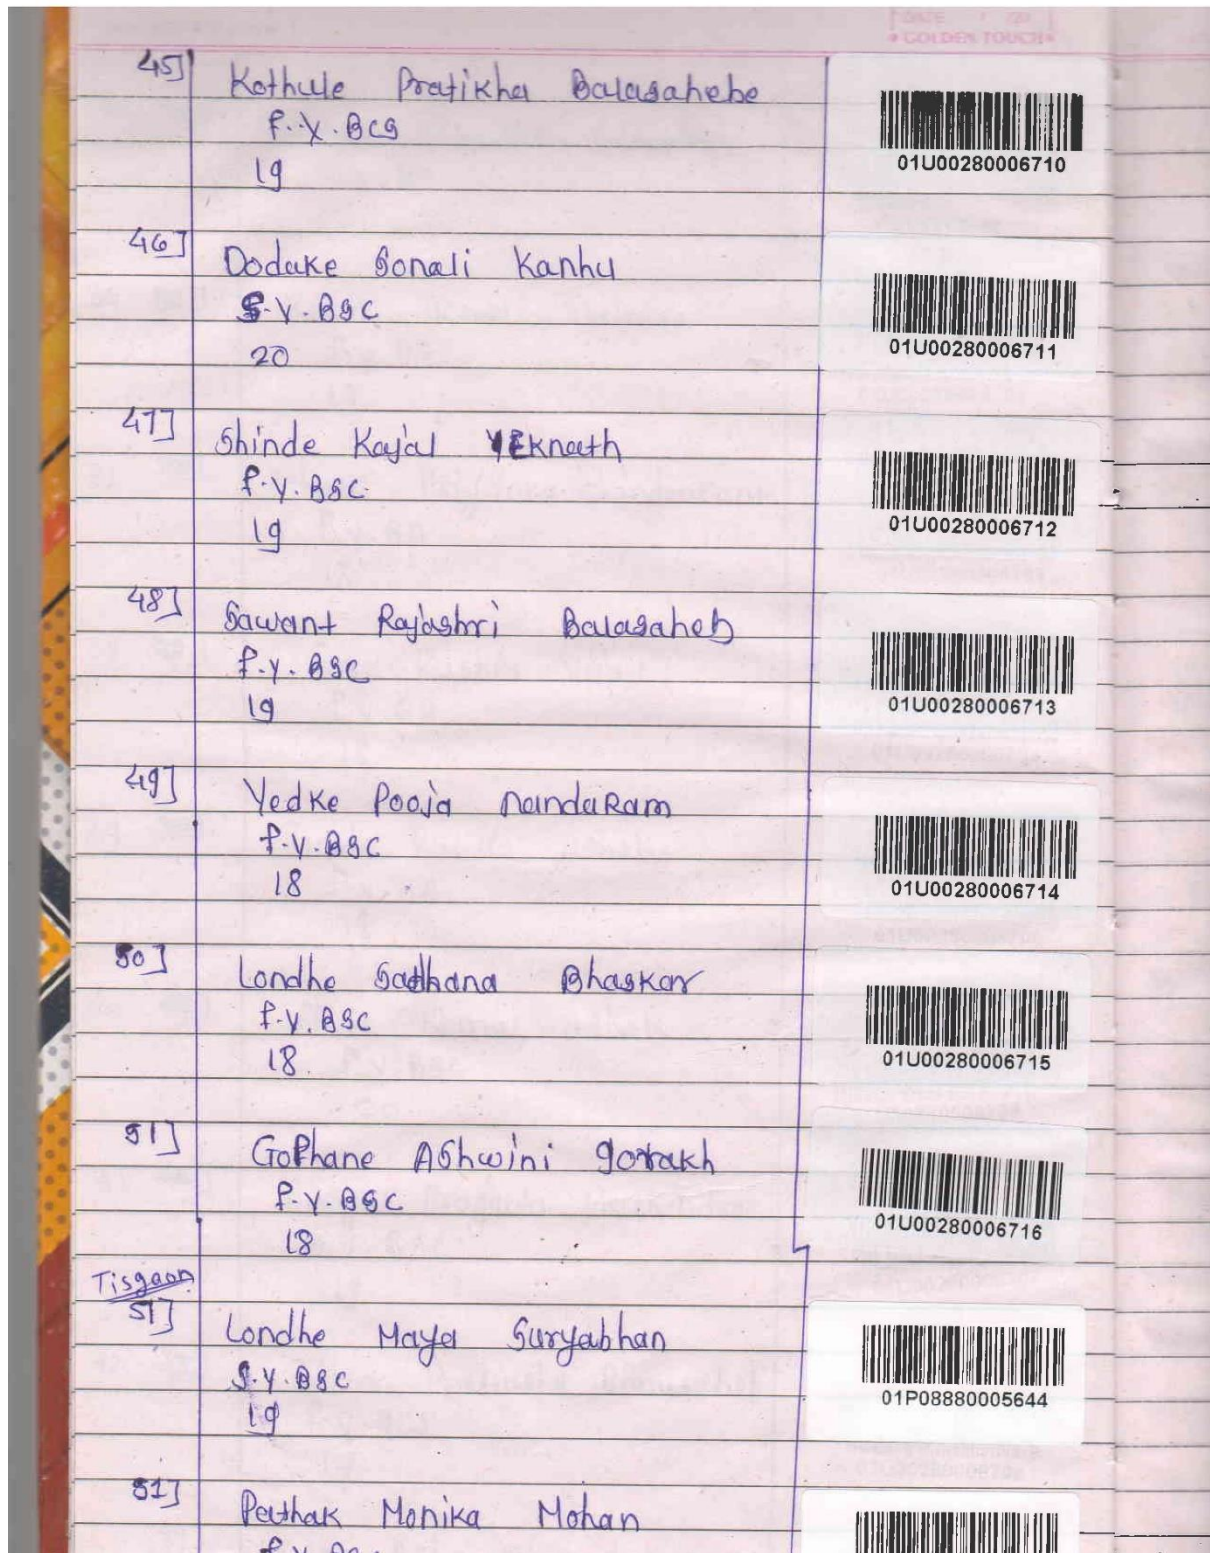 GOLDEN TOUCH
45]
Kothule Pratikha Balasahebe
F.Y.BCS
19
01U00280006710
46]
Dodake Sonali Kanhu
S.Y.BSC
20
01U00280006711
47]
Shinde Kajal YEknath
F.Y.BSC.
19
01U00280006712
48]
Sawant Rajashri Balasaheb
F.Y.BSC
19
01U00280006713
49]
Yedke Pooja NandaRam
F.Y.BSC
18
01U00280006714
50]
Londhe Sadhana Bhaskar
F.Y.BSC
18.
01U00280006715
51]
Gophane AShwini gorakh
F.Y.BSC
18
01U00280006716
Tisgaon
51]
Londhe Maya Suryabhan
S.Y.BSC
19
01P08880005644
Pathak Monika Mohan